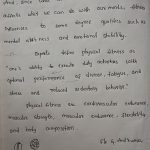 assess what we can do with our minds, fitness
references to some degree qualities such as
mental alertness and emotional stability.
Experts define physical fitness as
"one's ability to execute daily activities with
optimal performance, of disease, fatigue, and
stress and reduced sedentary behavior."
physical fitness are cardiovascular endurance
muscular strength, muscular endurance, flexibility
and body composition